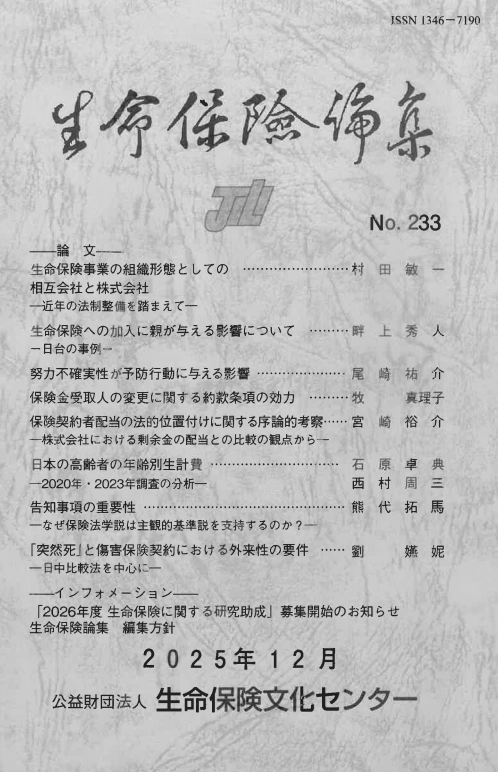 ISSN 1346－7190
生命保險論集
JILI
No. 233
――論　文――
生命保険事業の組織形態としての ……………………村　田　敏　一
相互会社と株式会社
―近年の法制整備を踏まえて―
生命保険への加入に親が与える影響について ………畔　上　秀　人
－日台の事例－
努力不確実性が予防行動に与える影響 …………………尾　崎　祐　介
保険金受取人の変更に関する約款条項の効力 ………牧　　　真理子
保険契約者配当の法的位置付けに関する序論的考察……宮　崎　裕　介
―株式会社における剰余金の配当との比較の観点から―
日本の高齢者の年齢別生計費 ………………………… 石　原　卓　典
―2020年・2023年調査の分析― 西　村　周　三
告知事項の重要性 …………………………………………熊　代　拓　馬
―なぜ保険法学説は主観的基準説を支持するのか？―
「突然死」と傷害保険契約における外来性の要件 ……劉　　　嬿　妮
―日中比較法を中心に―
――インフォメーション――
「2026年度 生命保険に関する研究助成」募集開始のお知らせ
生命保険論集　編集方針
2025年12月
公益財団法人 生命保険文化センター